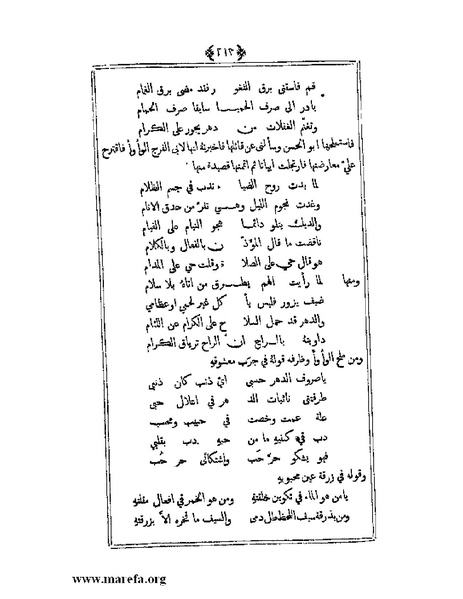 ﴿٢١٣﴾
قم فاسقني برق الثغو ر فقد مضى برق الغمام
بادر الى صرف الحميـــا سابقا صرف الحمام
وتغنّم الغفلات من دهر يجور على الكرام
فاستملحها ابو الحسن وسألني عن قائلها فاخبرته انها لابي الفرج الوأوأ فاقترح
عليّ معارضتها فارتجلت ابياتا ثم اتممتها قصيدة منها
لما بدت روح الضيا ء تدب في جسم الظلام
وغدت نجوم الليل وهـــي تفرّ من حدق الانام
والديك يتلو دائما هجو النيام على القيام
ناقضت ما قال المؤذّ ن بالفعال وبالكلام
هو قال حي على الصلا ة وقلت حي على المدام
ومنها لما رأيت الهم يطـــرق من اتاه بلا سلام
ضيف يزور فليس يأ كل غير لحمي او عظامي
والدهر قد حمل السلا ح على الكرام عن اللئام
داويته بالـــراح انّ الراح ترياق الكرام
ومن ملح الوأوأ وظرفه قوله في جرب معشوقه
ياصروف الدهر حسبي ايّ ذنب كان ذنبي
طرقتني نائبات الد هر في اعلال حبي
علة عمت وخصت في حبيب ومحب
دب في كفيه ما من حبه دب بقلبي
فهو يشكو حرّ حب واشتكائي حر حُب
وقوله في زرقة عين محبوبه
يا من هو الماء في تكوين خلقته ومن هو الخمر في افعال مقلته
ومن بزرقة سيف اللحظ طل دمي والسيف ما فخره الاّ بزرقته
www.marefa.org